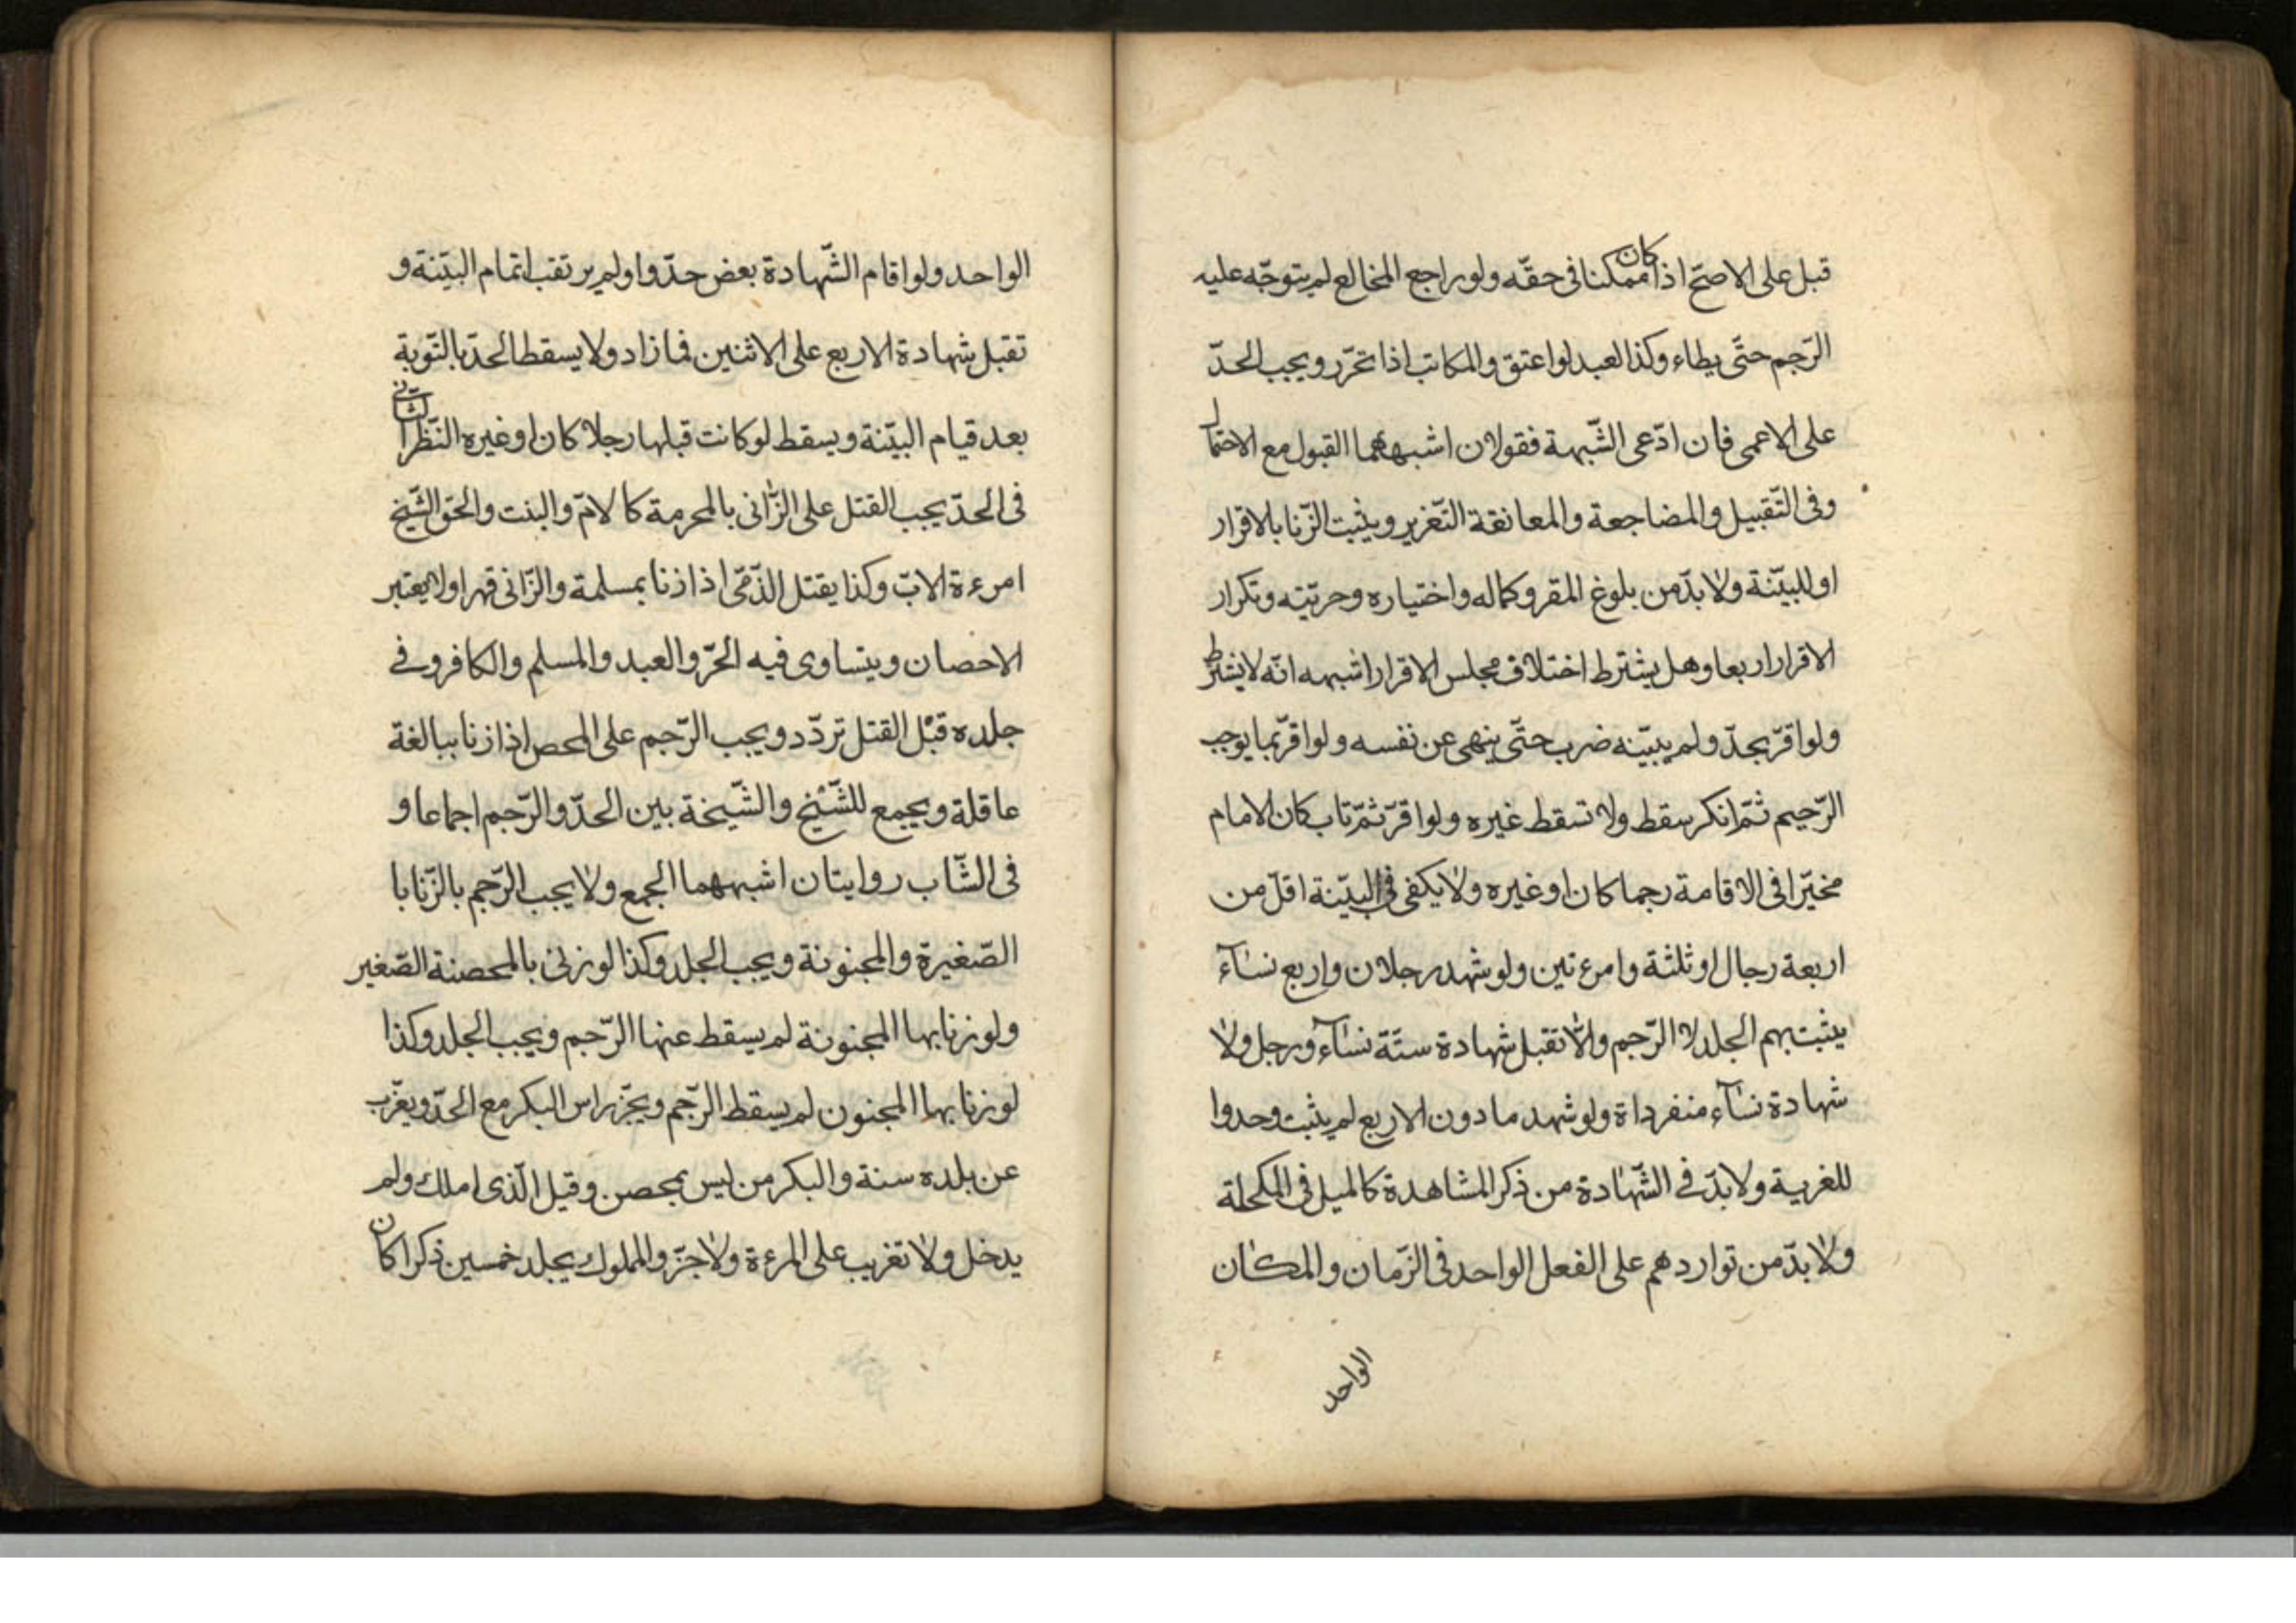 قبل على الاصحّ اذا كان ممكنا فى حقّه ولو راجع المخالع لم يتوجّه عليه
الرّجم حتّى يطاء وكذا العبد لو اعتق والمكاتب اذا تحرّر ويجب الحدّ
على الاعمى فان ادّعى الشّبهة فقولان اشبههما القبول مع الاحتمال
وفى التّقبيل والمضاجعة والمعانقة التّغرير ويثبت الزّنا بالاقرار
او للبيّنة ولا بدّ من بلوغ المقر وكماله واختياره وحريّته وتكرار
الاقرار اربعا وهل يشترط اختلاف مجلس الاقرار اشبهه انّه لا يشترط
ولو اقرّ بحدّ ولم يبيّنه ضرب حتّى ينهى عن نفسه ولو اقرّ بما يوجب
الرّجيم ثمّ انكر سقط ولا تسقط غيره ولو اقرّ ثمّ تاب كان الامام
مخيّرا فى الاقامة رجما كان او غيره ولا يكفى فى البيّنة اقلّ من
اربعة رجال او ثلثة وامرءتين ولو شهد رجلان واربع نسآء
يثبت بهم الجلد لا الرّجم ولا تقبل شهادة ستّة نسآء ورجل ولا
شهادة نسآء منفرداة ولو شهد ما دون الاربع لم يثبت وحدوا
للغرية ولا بدّ فى الشّهادة من ذكر المشاهدة كالميل فى المكحلة
ولا بدّ من تواردهم على الفعل الواحد فى الزّمان والمكان
الواحد
الواحد ولو اقام الشّهادة بعض حدّوا ولم يرتقب اتمام البيّنة و
تقبل شهادة الاربع على الاثنين فما زاد ولا يسقط الحدّ بالتّوبة
بعد قيام البيّنة ويسقط لو كانت قبلها رجلا كان او غيره النّظر الثّانى
فى الحدّ يجب القتل على الزّانى بالمحرمة كالامّ والبنت والحق الشّيخ
امرءة الابّ وكذا يقتل الذّمّى اذا زنا بمسلمة والزّانى قهرا ولا يعتبر
الاحصان ويتساوى فيه الحرّ والعبد والمسلم والكافر وفى
جلده قبل القتل تردّد ويجب الرّجم على المحصن اذا زنا ببالغة
عاقلة ويجمع للشّيخ والشّيخة بين الحدّ والرّجم اجماعا و
فى الشّاب روايتان اشبههما الجمع ولا يجب الرّجم بالزّنا با
الصّغيرة والمجنونة ويجب الجلد وكذا لو زنى بالمحصنة الصّغير
ولو زنا بها المجنونة لم يسقط عنها الرّجم ويجب الجلد وكذا
لو زنا بها المجنون لم يسقط الرّجم ويجزّ راس البكر مع الحدّ ويغرّب
عن بلده سنة والبكر من ليس بمحصن وقيل الّذى املك ولم
يدخل ولا تغريب على المرءة ولا جزّ والمملوك يجلد خمسين ذكرا كان